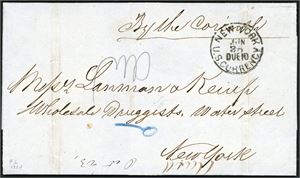 By the
NEW-YORK
JUN
30
DUE 10
U.S. CURRENCY
Messrs Lanman & Kemp
Wholesale Druggists, Water street
New York